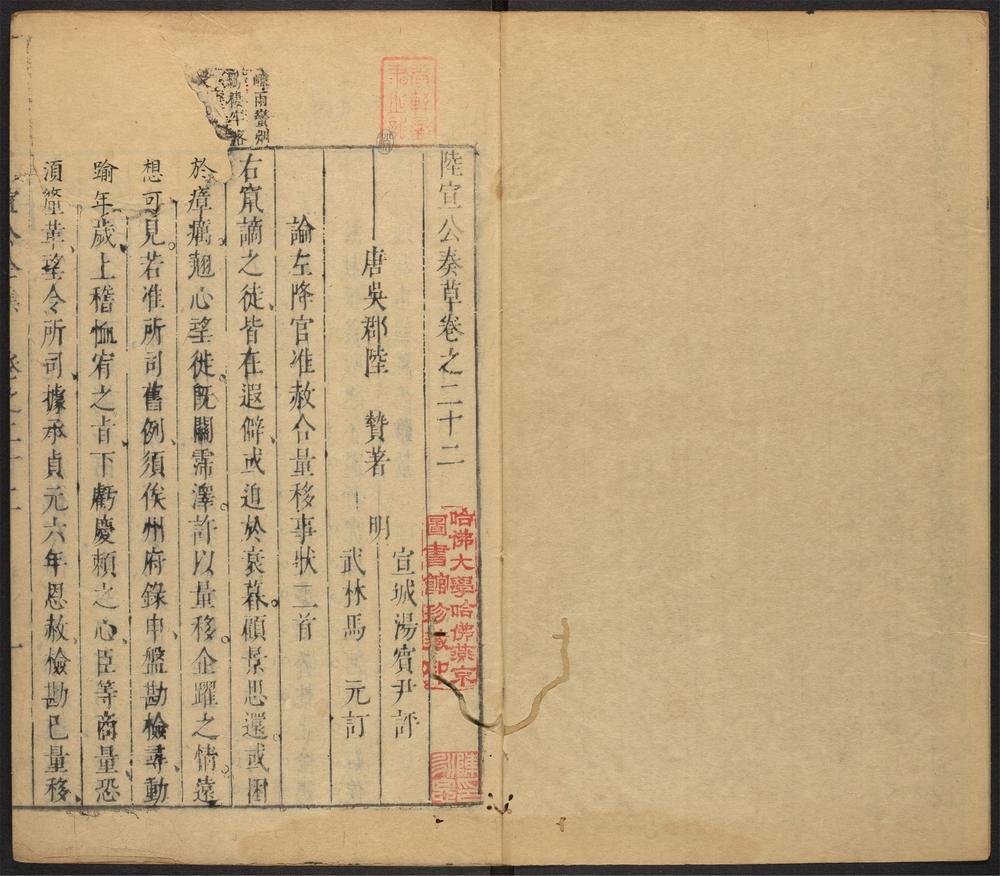 陸宣公奏草卷之二十二
唐吳郡陸　贄著
明
宣城湯賓尹評
武林馬　元訂
論左降官准赦合量移事狀三首
右竄謫之徒、皆在遐僻、或迫於衰暮、顧景思還、或困
於瘴癘、翹心望徙、既關霈澤、許以量移、企躍之情、遠
想可見。若准所司舊例、須俟州府錄申、盤勘檢尋、動
踰年歲、上稽恤宥之旨、下虧慶賴之心、臣等商量、恐
須釐革、望令所司據承貞元六年恩赦、檢勘已量移
蠻烟
哈佛大學哈佛燕京
圖書館珍藏印